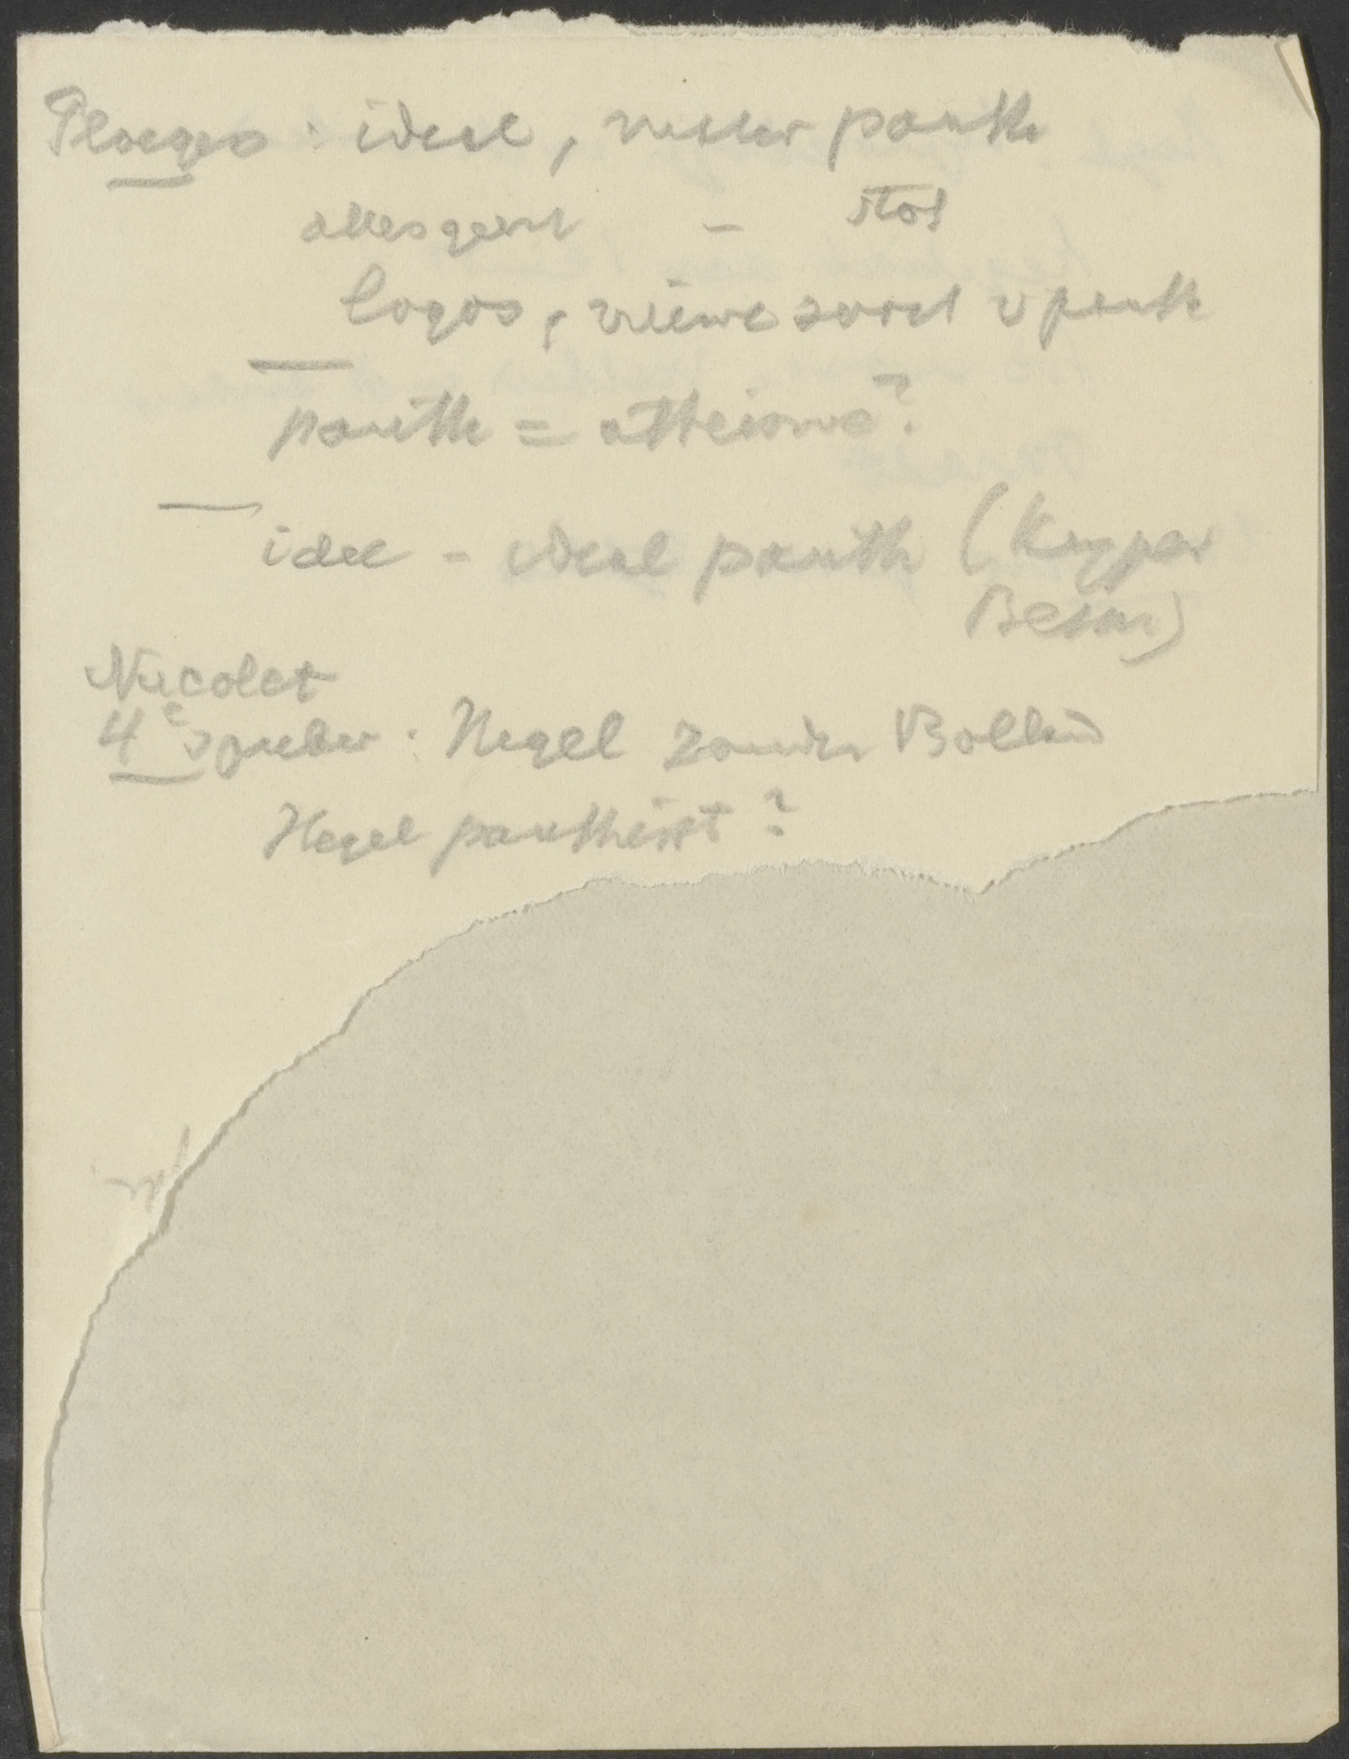 Ploeger : ideal, mater panth
alles geest - stof
logos, nieuwe soort v panth
panth = atheisme?
idee - ideal panth (Kuyper
Nicolet
4e spreker : Hegel zonder Bolland
Hegel pantheist?